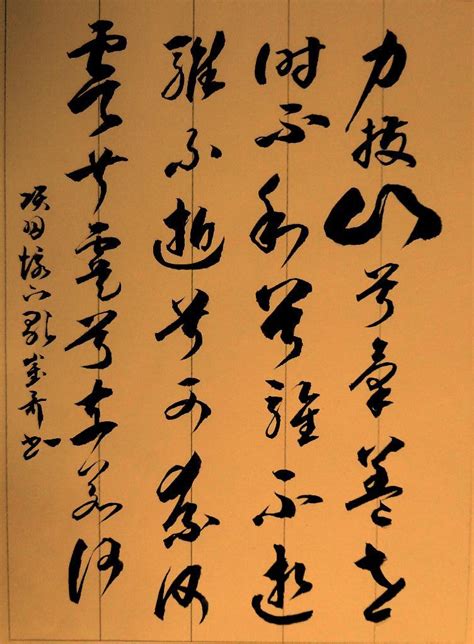 力拔山兮氣盖世
时不利兮騅不逝
騅不逝兮可奈何
虞兮虞兮奈若何
项羽垓下歌 书